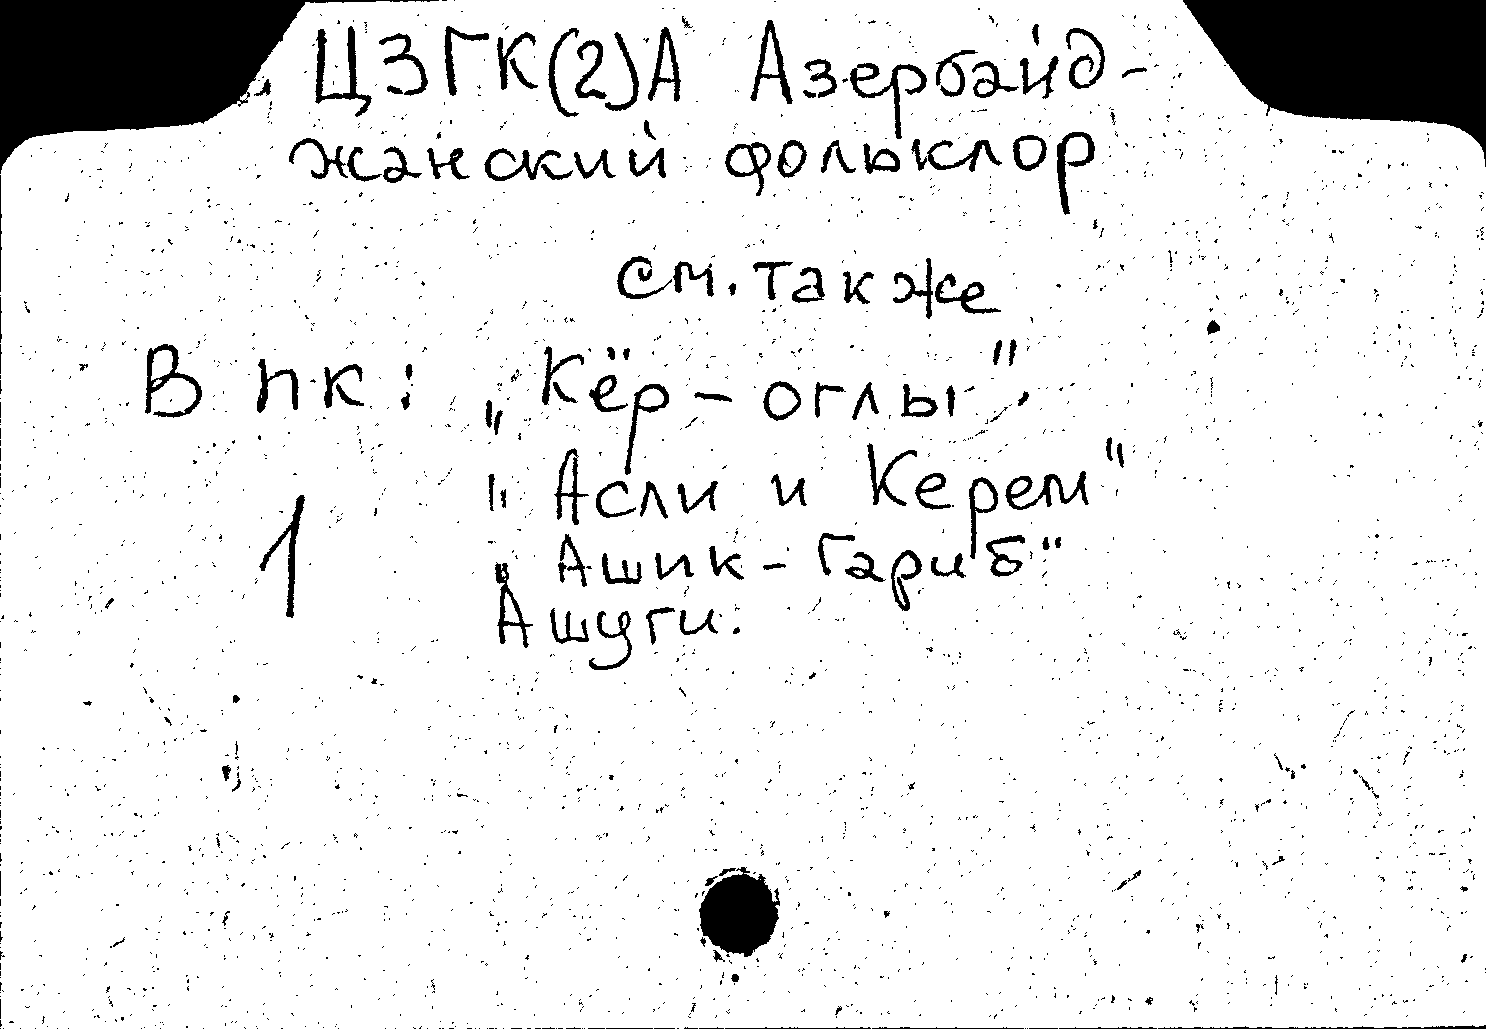 ЦЗГК(2)А Азербайд-
жанский фольклор
см. также
В пк: „Кёр-оглы"
"Асли и Керем"
1 „Ашик-Гариб"
Ашуги.